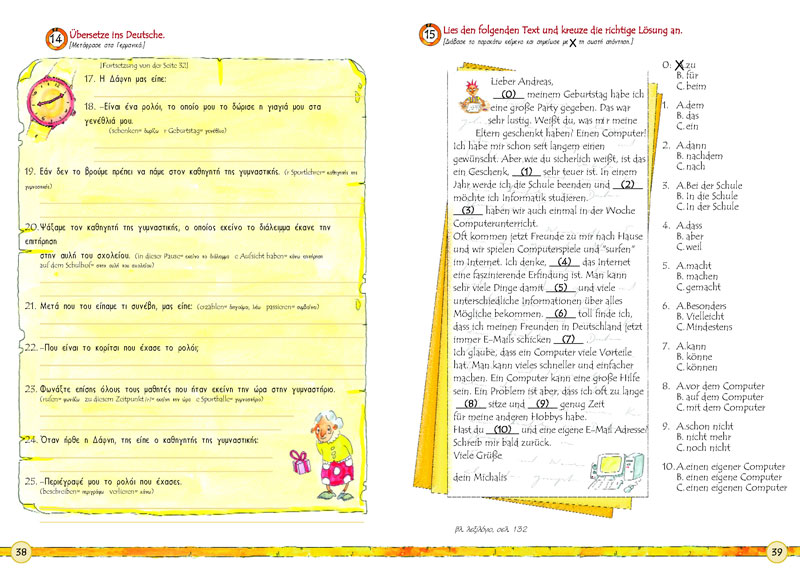 14 Übersetze ins Deutsche.
[Μετάφρασε στα Γερμανικά.]
[Fortsetzung von der Seite 32]
17. Η Δάφνη μας είπε:
18. –Είναι ένα ρολόι, το οποίο μου το δώρισε η γιαγιά μου στα
γενέθλιά μου.
(schenken= δωρίζω r Geburtstag= γενέθλια)
19. Εάν δεν το βρούμε πρέπει να πάμε στον καθηγητή της γυμναστικής. (r Sportlehrer= καθηγητής της
γυμναστικής)
20. Ψάξαμε τον καθηγητή της γυμναστικής, ο οποίος εκείνο το διάλειμμα έκανε την
επιτήρηση
στην αυλή του σχολείου. (in dieser Pause= εκείνο το διάλειμμα e Aufsicht haben= κάνω επιτήρηση
auf dem Schulhof= στην αυλή του σχολείου)
21. Μετά που του είπαμε τι συνέβη, μας είπε: (erzählen= διηγούμαι, λέω passieren= συμβαίνω)
22. –Που είναι το κορίτσι που έχασε το ρολόι;
23. Φωνάξτε επίσης όλους τους μαθητές που ήταν εκείνη την ώρα στην γυμναστήριο.
(rufen= φωνάζω zu diesem Zeitpunkt (r)= εκείνη την ώρα e Sporthalle= γυμναστήριο)
24. Όταν ήρθε η Δάφνη, της είπε ο καθηγητής της γυμναστικής:
25. –Περιέγραψέ μου το ρολόι που έχασες.
(beschreiben= περιγράφω verlieren= χάνω)
38
15 Lies den folgenden Text und kreuze die richtige Lösung an.
[Διάβασε το παρακάτω κείμενο και σημείωσε με X τη σωστή απάντηση.]
Lieber Andreas,
(0) meinem Geburtstag habe ich
eine große Party gegeben. Das war
sehr lustig. Weißt du, was mir meine
Eltern geschenkt haben? Einen Computer!
Ich habe mir schon seit langem einen
gewünscht. Aber wie du sicherlich weißt, ist das
ein Geschenk, (1) sehr teuer ist. In einem
Jahr werde ich die Schule beenden und (2)
möchte ich Informatik studieren.
(3) haben wir auch einmal in der Woche
Computerunterricht.
Oft kommen jetzt Freunde zu mir nach Hause
und wir spielen Computerspiele und "surfen"
im Internet. Ich denke, (4) das Internet
eine faszinierende Erfindung ist. Man kann
sehr viele Dinge damit (5) und viele
unterschiedliche Informationen über alles
Mögliche bekommen. (6) toll finde ich,
dass ich meinen Freunden in Deutschland jetzt
immer E-Mails schicken (7).
Ich glaube, dass ein Computer viele Vorteile
hat. Man kann vieles schneller und einfacher
machen. Ein Computer kann eine große Hilfe
sein. Ein Problem ist aber, dass ich oft zu lange
(8) sitze und (9) genug Zeit
für meine anderen Hobbys habe.
Hast du (10) und eine eigene E-Mail Adresse?
Schreib mir bald zurück.
Viele Grüße
dein Michalis
βλ. λεξιλόγιο, σελ. 132
0: X zu
B. für
C. beim
1. A.dem
B. das
C. ein
2. A.dann
B. nachdem
C. nach
3. A.Bei der Schule
B. In die Schule
C. In der Schule
4. A.dass
B. aber
C. weil
5. A.macht
B. machen
C. gemacht
6. A.Besonders
B. Vielleicht
C. Mindestens
7. A.kann
B. könne
C. können
8. A.vor dem Computer
B. auf dem Computer
C. mit dem Computer
9. A.schon nicht
B. nicht mehr
C. noch nicht
10. A.einen eigener Computer
B. einen eigenen Computer
C. einen eigenen Computer
39